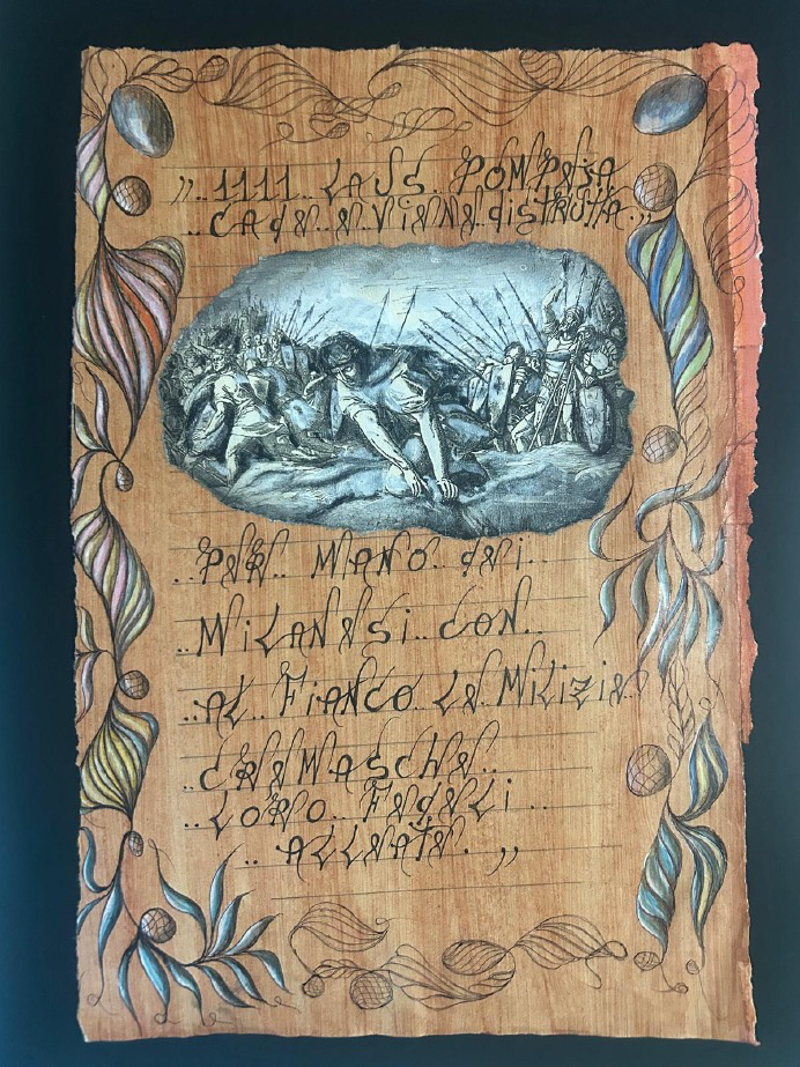 „..1111.. LAUS. POMPEJA
..CADE. E VIENE distRUttA..„
..PER.. MANO.. dEi..
..MiLANESi.. CON..
..AL.. FiANCO LE MiLiZiE
..CREMASCHE..
..LORO.. FEdELi..
.. ALLEATE. „